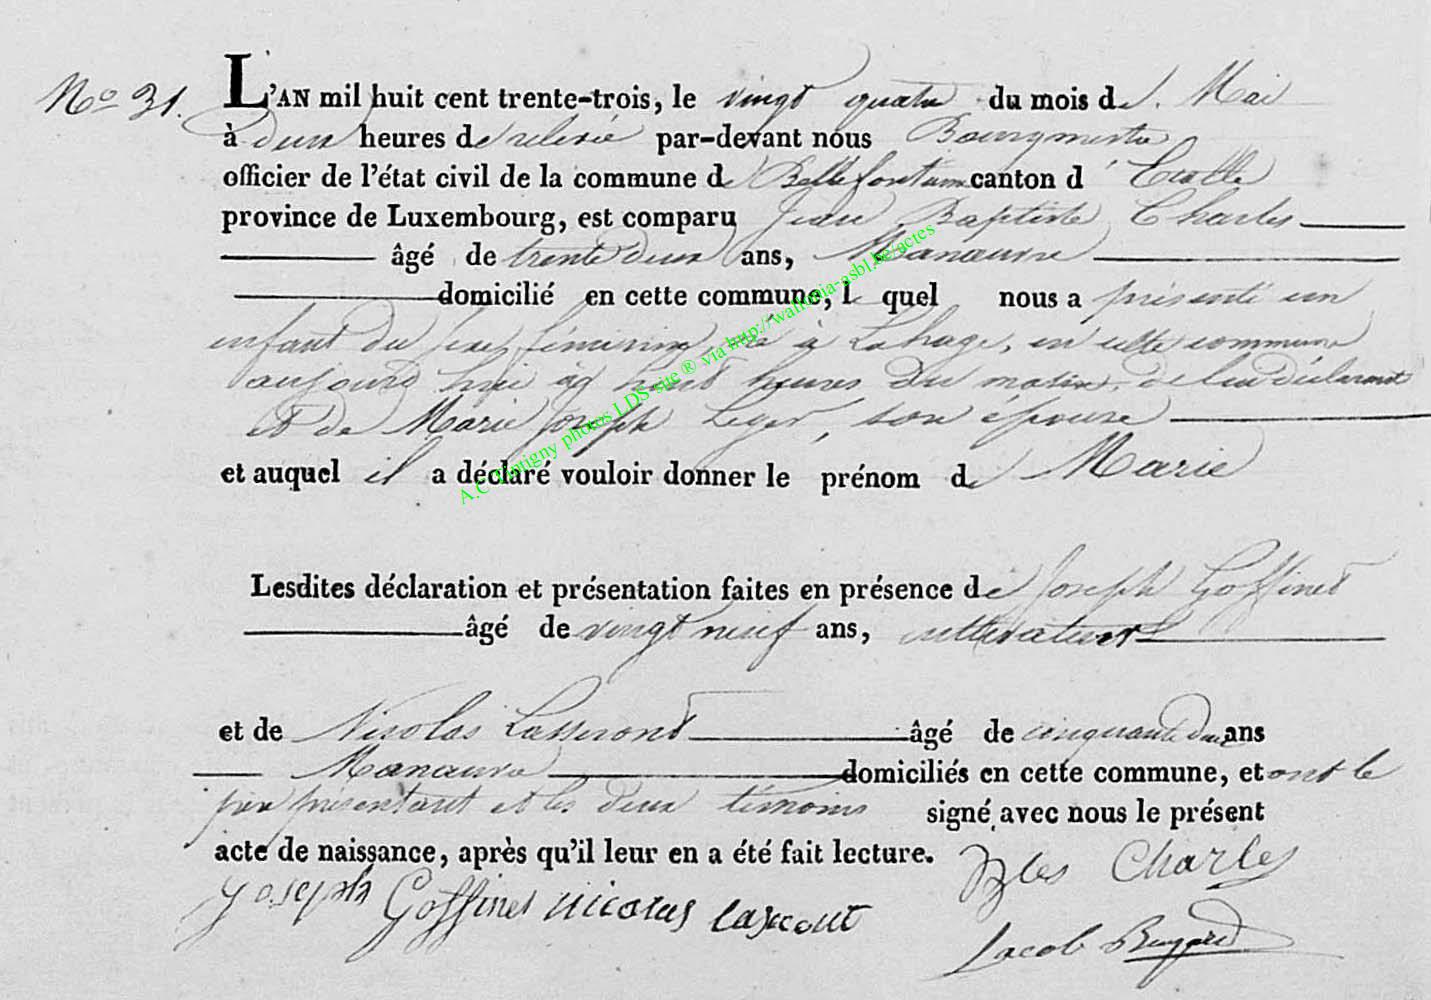 No 31.
L'AN mil huit cent trente-trois, le vingt quatre du mois de Mai
à deux heures de relevée par-devant nous Bourgmestre
officier de l'état civil de la commune de Bellefontaine canton d' Etalle
province de Luxembourg, est comparu Jean Baptiste Charles
âgé de trente deux ans, Manœuvre
domicilié en cette commune, le quel nous a présenté un
enfant du sexe féminin, né à Lahage, en cette commune
aujourd'hui à heures du matin, de lui déclarant
et de Marie Joseph Leger, son épouse
et auquel il a déclaré vouloir donner le prénom de Marie
Lesdites déclaration et présentation faites en présence de Joseph Goffinet
âgé de vingt neuf ans, cultivateur
et de Nicolas Lasseront âgé de cinquante deux ans
Manœuvre domiciliés en cette commune, et ont le
père présentant et les deux témoins signé avec nous le présent
acte de naissance, après qu'il leur en a été fait lecture.
Charles
Joseph Goffinet nicolas
Jacob
A.C Tintigny photos LDS site ® via http://wallonia-asbl.be/actes